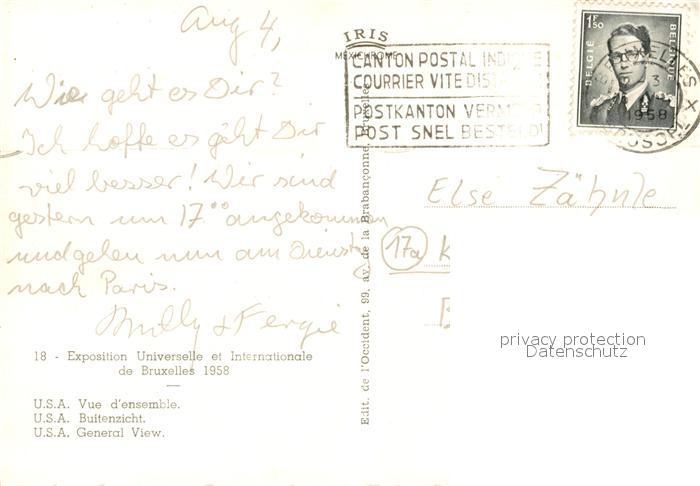 Aug 4,
Wie geht es Dir?
Ich hoffe es geht Dir
viel besser! Wir sind
gestern um 17°° angekommen
und gehen nun am Dienstag
nach Paris.
Molly & Fergie
18 - Exposition Universelle et Internationale
de Bruxelles 1958
U.S.A. Vue d'ensemble.
U.S.A. Buitenzicht.
U.S.A. General View.
IRIS
MEXICHROME
Edit. de l'Occident, 99. av. de la Brabançonne, Bruxelles
CANTON POSTAL INDIQUE
COURRIER VITE DIS
POSTKANTON VERM
POST SNEL BESTELD!
1F50
BELGIE
BELGIQUE
3
1958
Else Zähnle
17a K
privacy protection
Datenschutz